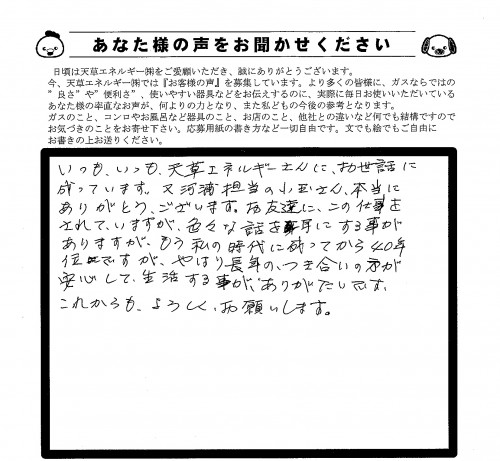 あなた様の声をお聞かせください
日頃は天草エネルギー㈱をご愛顧いただき、誠にありがとうございます。
今、天草エネルギー㈱では『お客様の声』を募集しています。より多くの皆様に、ガスならではの
”良さ”や”便利さ”、使いやすい器具などをお伝えするのに、実際に毎日お使いいただいている
あなた様の率直なお声が、何よりの力となり、また私どもの今後の参考となります。
ガスのこと、コンロやお風呂など器具のこと、お店のこと、他社との違いなど何でも結構ですので
お気づきのことをお寄せ下さい。応募用紙の書き方など一切自由です。文でも絵でもご自由に
お書きの上お送りください。
いつも、いつも、天草エネルギーさんに、お世話に
成っています。又河浦担当の小玉さん、本当に
ありがとう、ございます。お友達に、この仕事を
されて、いますが、色々な話を耳にする事が
ありますが、もう私の時代に成ってから40年
位ですが、やはり長年の、つき合いの方が
安心して、生活する事が、ありがたいです。
これからも、よろしく、お願いします。